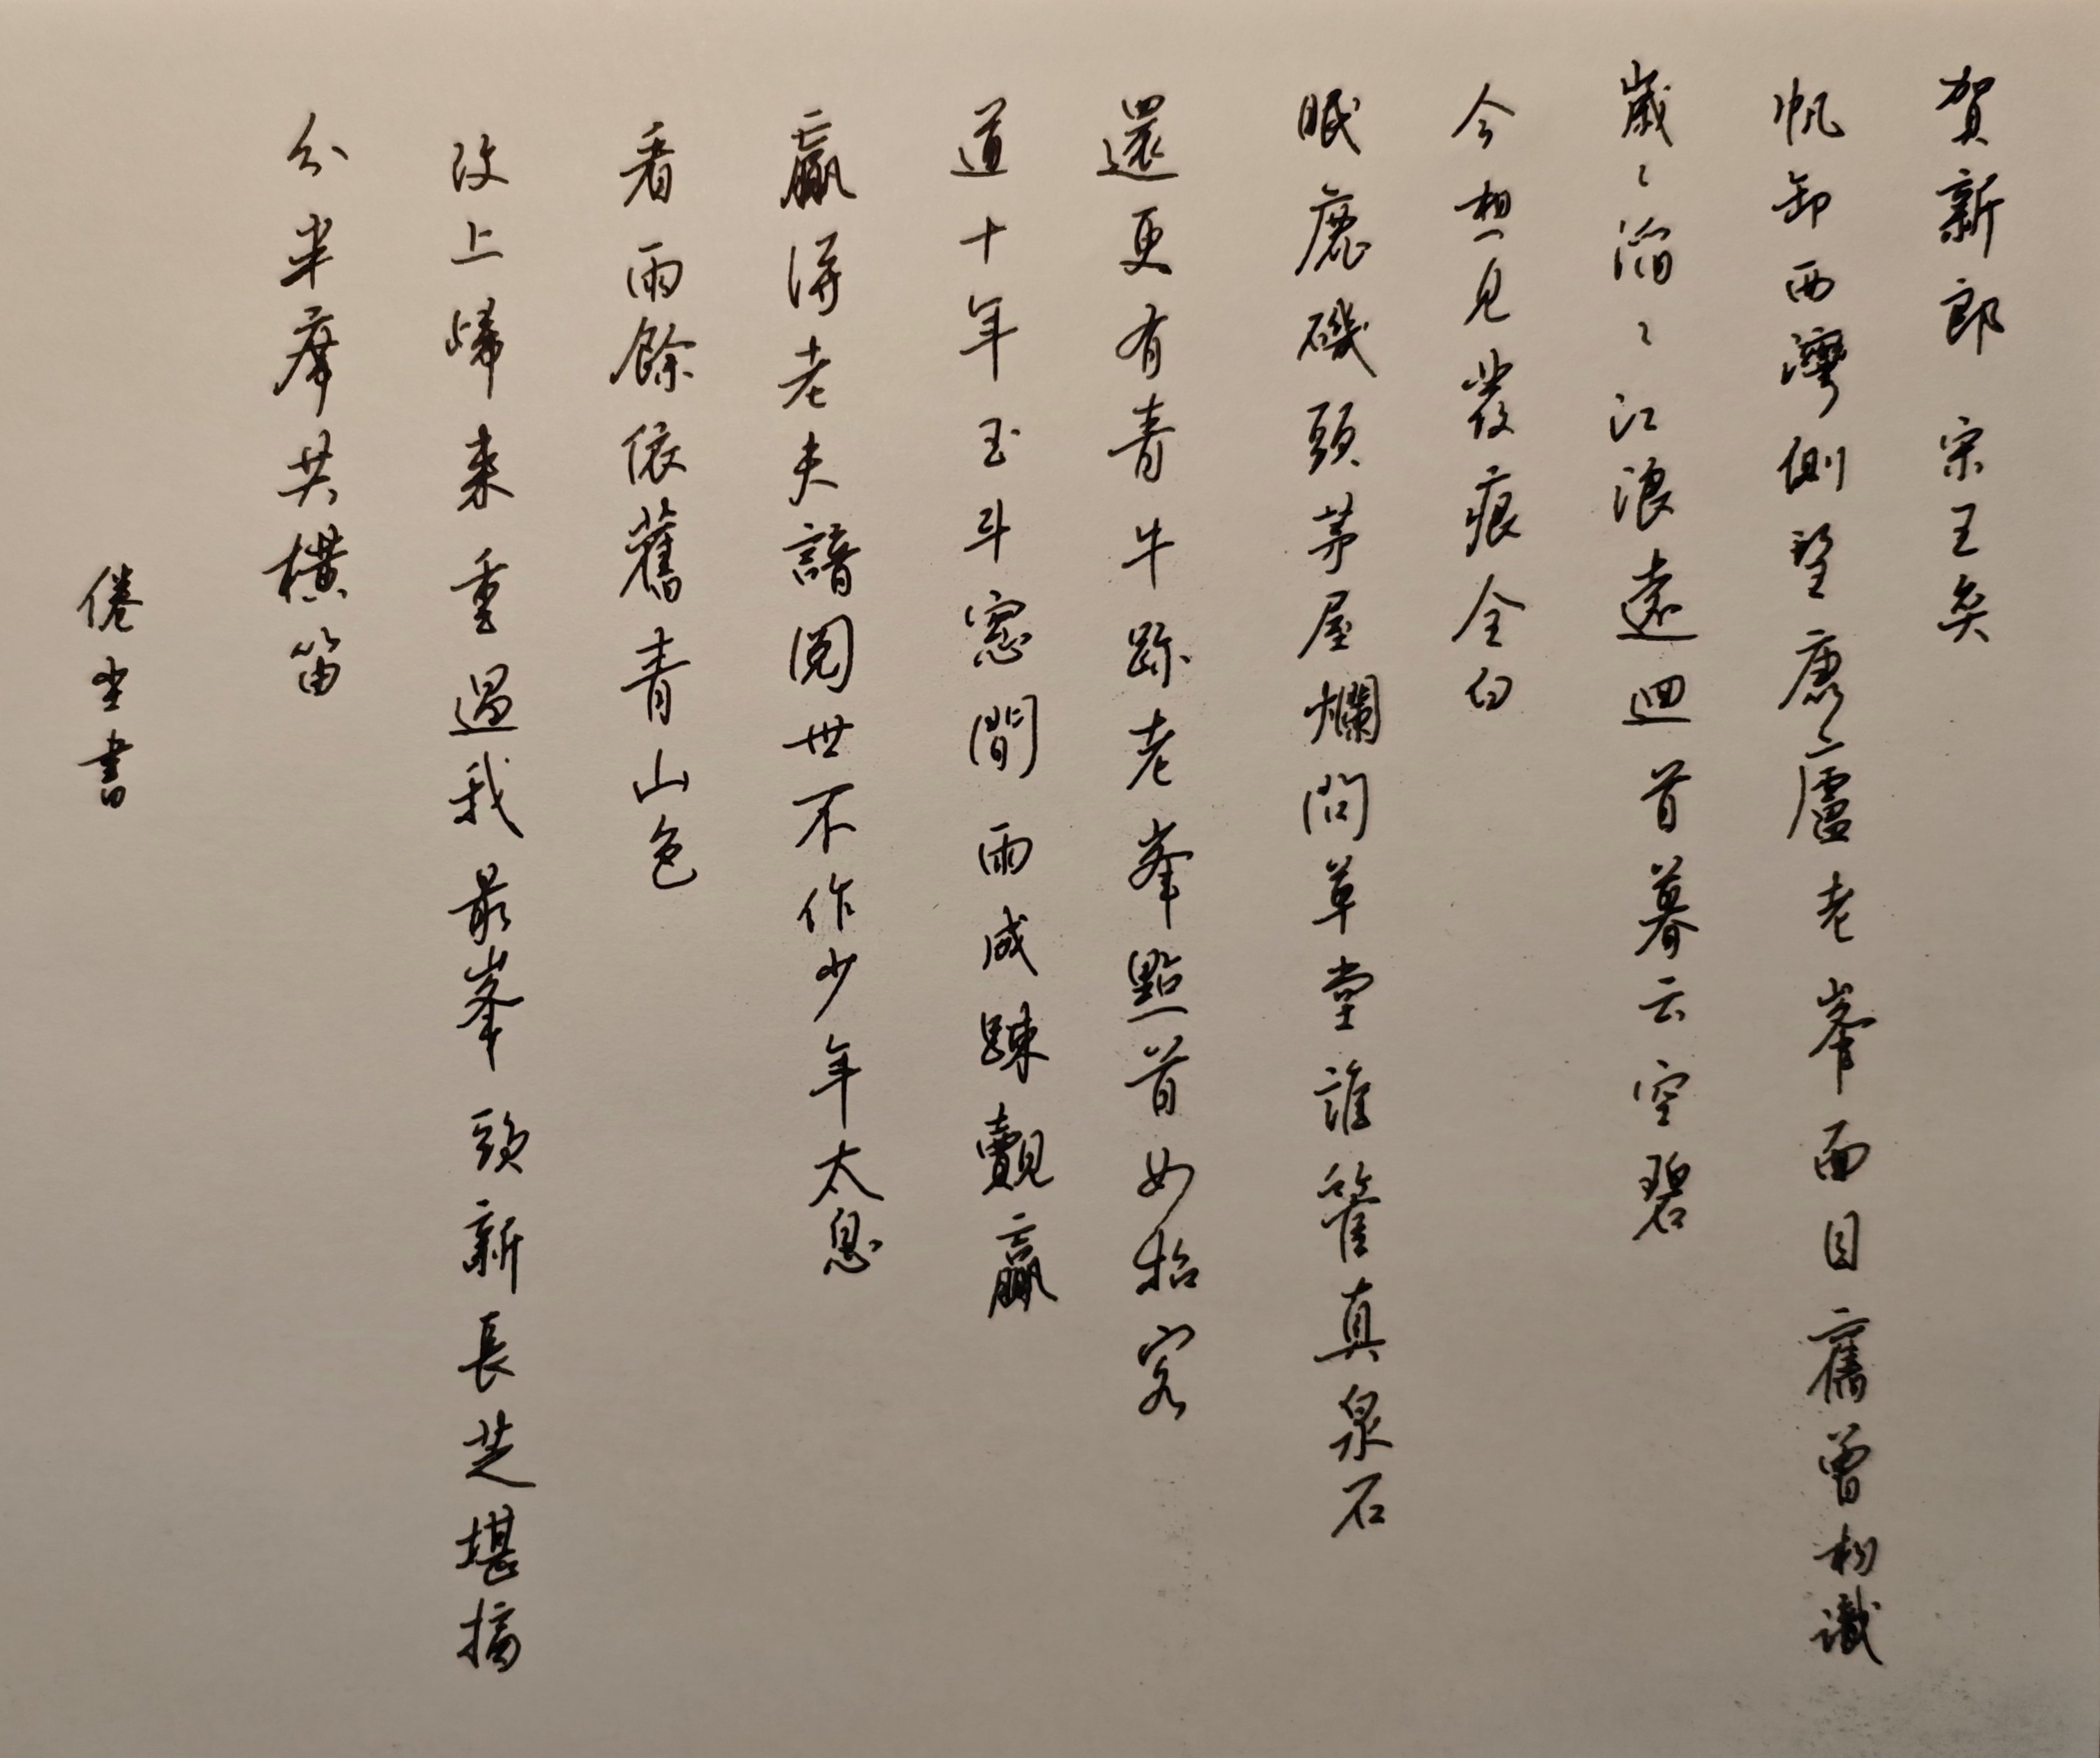 賀新郎 宋王奕
帆卸西灣側望康廬老峯面目舊曾相識
歲〻滔〻江浪遠迴首暮云空碧
今想見發痕全白
眠鹿磯頭茅屋爛問草堂誰管真泉石
還更有青牛跡老峯點首如招客
道十年玉斗窓間雨成疎觀贏
贏得老夫諳閱世不作少年太息
看雨餘依舊青山色
汶上歸來重過我最峯頭新長芝堪摘
分半席共橫笛
倦坐書